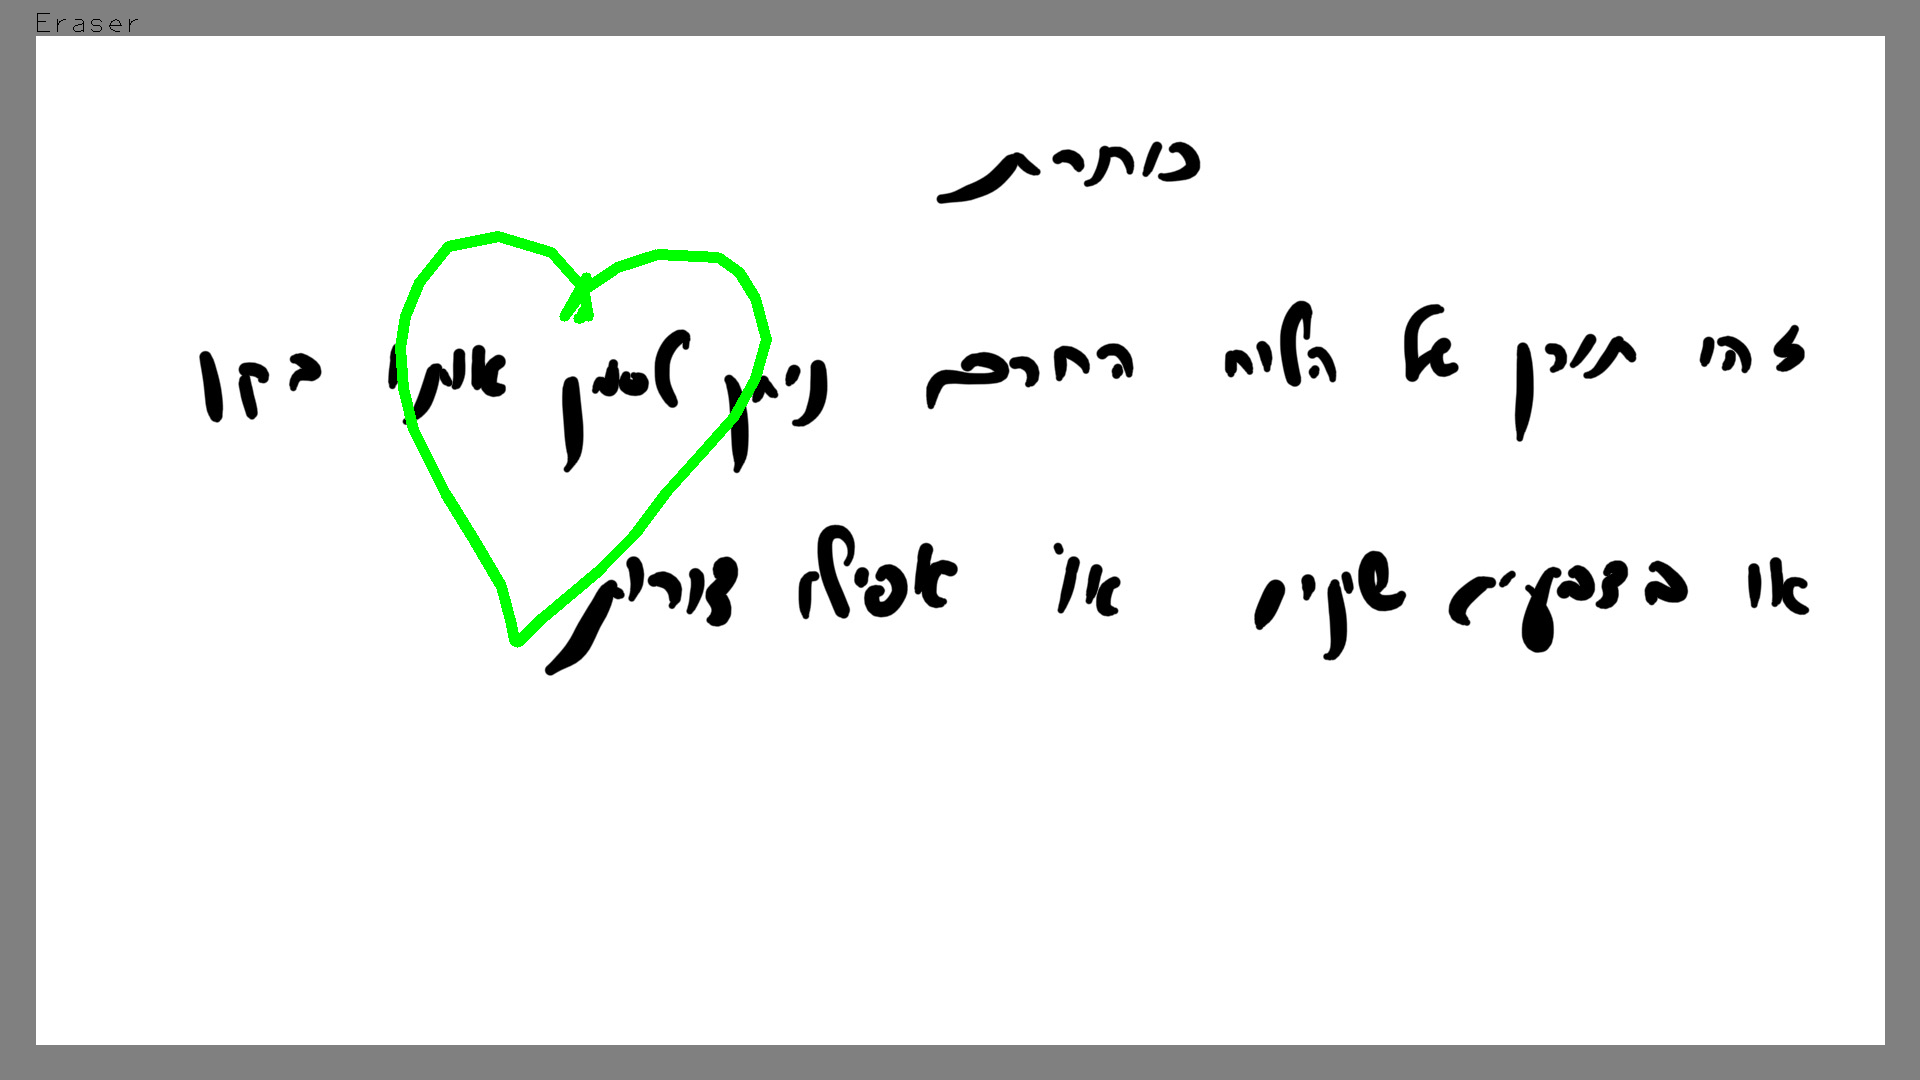 Eraser
כותרת
זהו תוכן של הלוח החכם ניתן לסמן אותו בקו
או בצבעים שונים או אפילו צורות